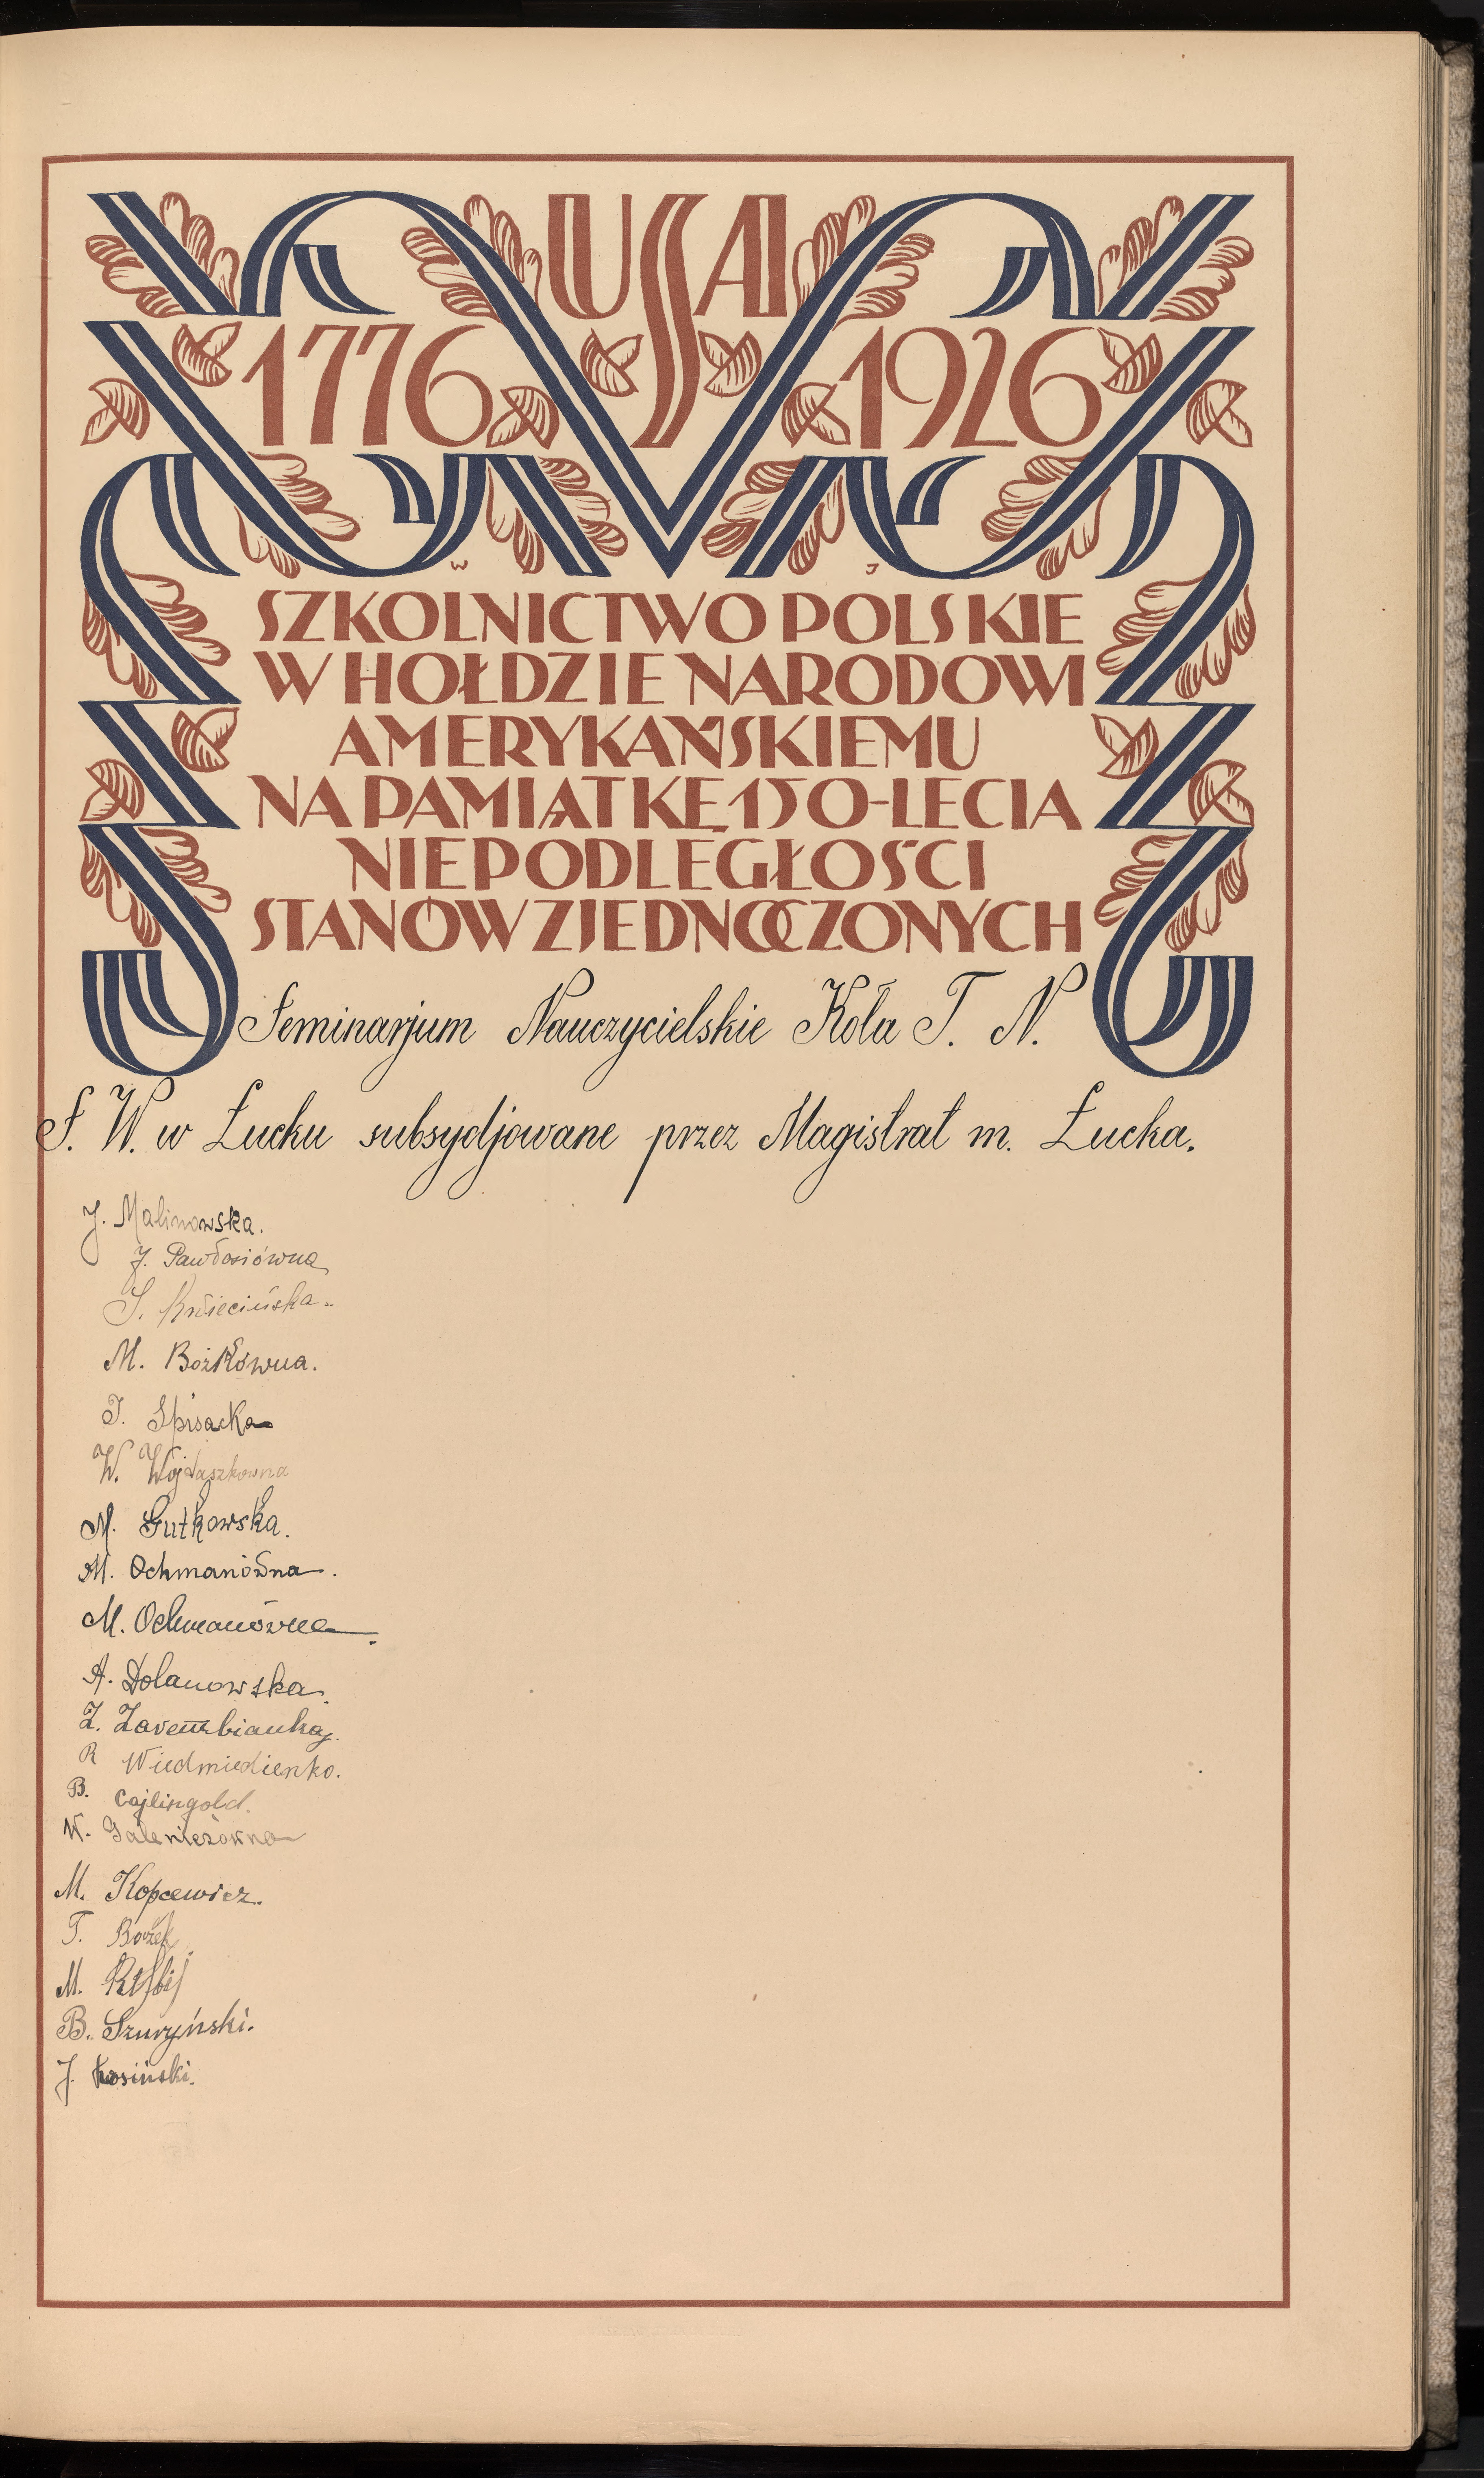 USA
1776 1926
W J
SZKOLNICTWO POLSKIE
W HOŁDZIE NARODOWI
AMERYKAŃSKIEMU
NA PAMIĄTKĘ 150-LECIA
NIEPODLEGŁOŚCI
STANÓW ZJEDNOCZONYCH
Seminarjum Nauczycielskie Koła T. N.
S. W. w Łucku subsydjowane przez Magistrat m. Łucka.
J. Malinowska.
J. Pawłosiówna
S. Kwiecińska.
M. Bożkówna.
J. Spisacka
W. Wojtaszkowna
M. Gutkowska.
M. Ochmanówna.
M. Ochmanówna.
A. Dolanowska.
Z. Zarembianka.
R Wiedmiedienko.
B. Cajlingold.
W. Galeniezowna
M. Kopcewicz.
T. Bożek
M.
B. Szuryński.
J. Łosiński.